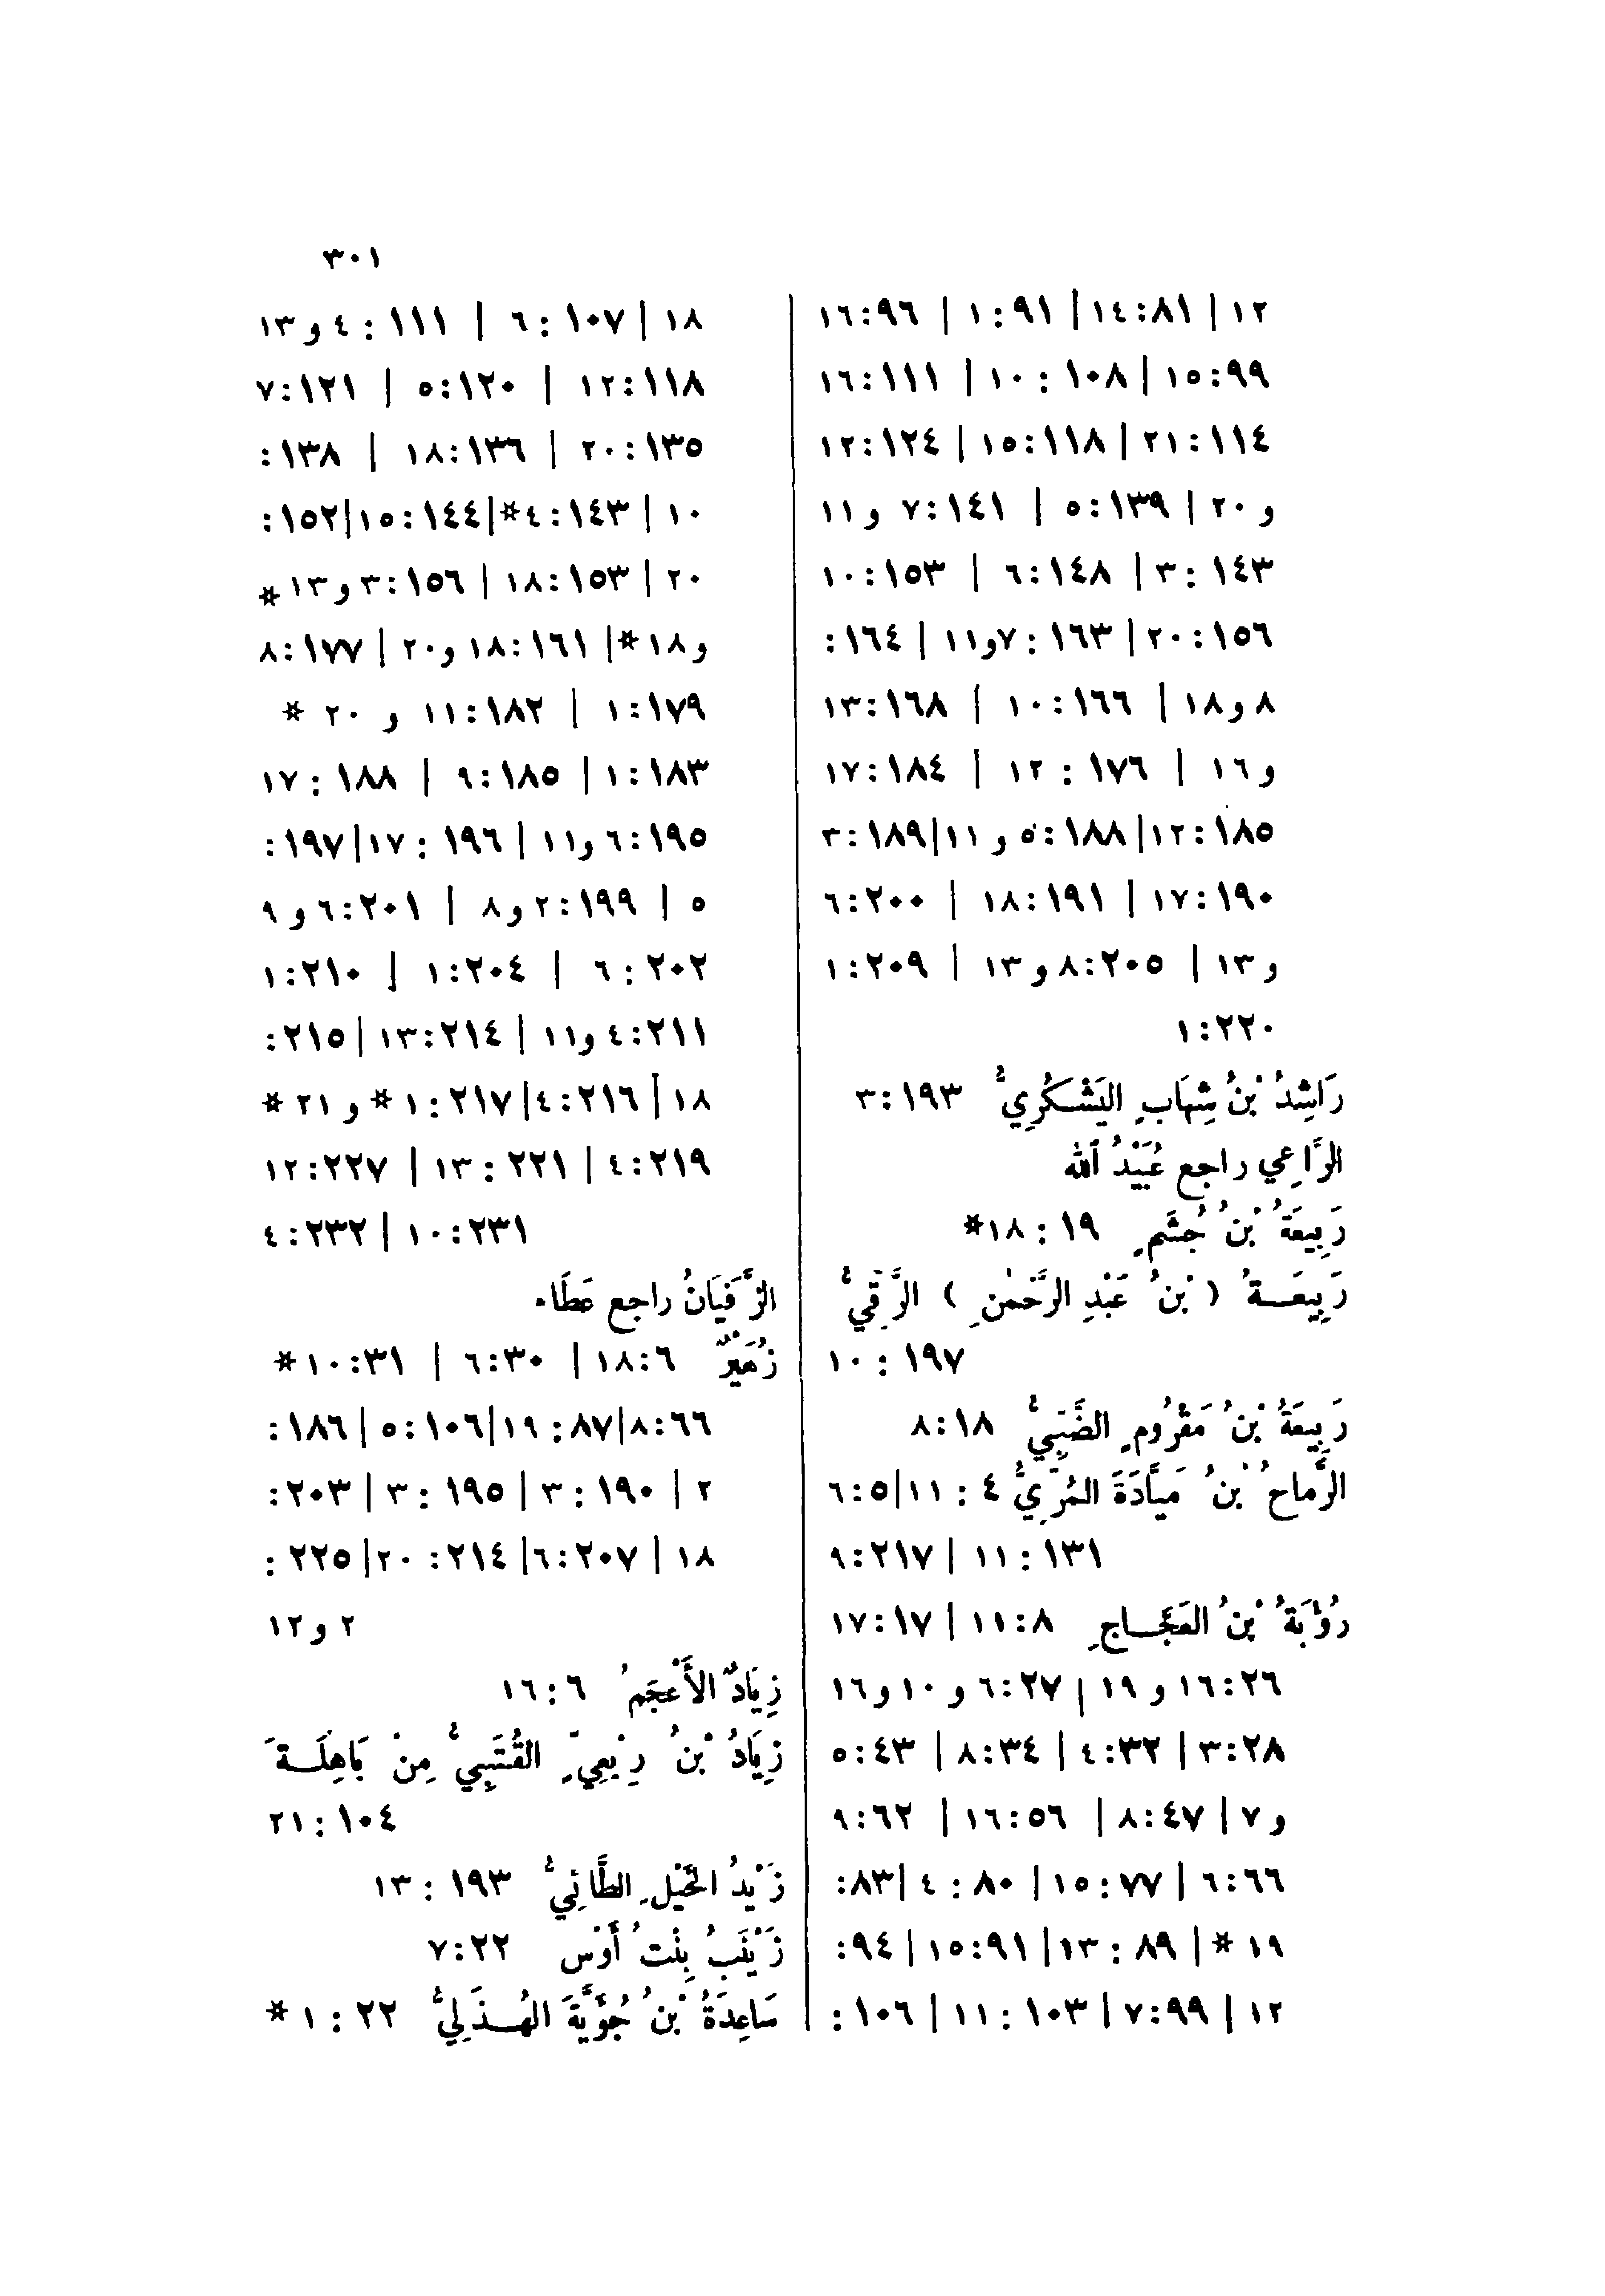 ٣٠١
١٢ | ١٤:٨١ | ١:٩١ | ١٦:٩٦
١٥:٩٩ | ١٠:١٠٨ | ١٦:١١١
٢١:١١٤ | ١٥:١١٨ | ١٢:١٢٤
و ٢٠ | ٥:١٣٩ | ٧:١٤١ و ١١
٣:١٤٣ | ٦:١٤٨ | ١٠:١٥٣
٢٠:١٥٦ | ٧:١٦٣ و١١ | ١٦٤:
٨ و ١٨ | ١٠:١٦٦ | ١٣:١٦٨
و ١٦ | ١٢:١٧٦ | ١٧:١٨٤
١٢:١٨٥ | ٥:١٨٨ و ١١ | ٣:١٨٩
١٧:١٩٠ | ١٨:١٩١ | ٦:٢٠٠
و ١٣ | ٨:٢٠٥ و ١٣ | ١:٢٠٩
١:٢٢٠
رَاشِدُ بْنُ شِهَابٍ اليَشْكُرِيُّ ٣:١٩٣
الرَّاعِي راجع عُبَيْدُ ٱلله
رَبِيعَةُ بْنُ جُشَمٍ ١٨:١٩*
رَبِيعَةُ ( بْنُ عَبْدِ الرَّحْمٰنِ ) الرَّقِّيُّ
١٠:١٩٧
رَبِيعَةُ بْنُ مَقْرُومٍ الضَّبِّيُّ ٨:١٨
الرَّماحُ بْنُ مَيَّادَةَ المُرِّيُّ ١١:٤ | ٦:٥
١١:١٣١ | ٩:٢١٧
رُؤْبَةُ بْنُ العَجَّاجِ ١١:٨ | ١٧:١٧
١٦:٢٦ و ١٩ | ٦:٢٧ و ١٠ و ١٦
٣:٢٨ | ٤:٣٢ | ٨:٣٤ | ٥:٤٣
و ٧ | ٨:٤٧ | ١٦:٥٦ | ٩:٦٢
٦:٦٦ | ١٥:٧٧ | ٤:٨٠ | ٨٣:
١٩ * | ١٣:٨٩ | ١٥:٩١ | ٩٤:
١٢ | ٧:٩٩ | ١١:١٠٣ | ١٠٦:
١٨ | ٦:١٠٧ | ٤:١١١ و ١٣
١٢:١١٨ | ٥:١٢٠ | ٧:١٢١
٢٠:١٣٥ | ١٨:١٣٦ | ١٣٨:
١٠ | ٤:١٤٣* | ١٥:١٤٤ | ١٥٢:
٢٠ | ١٨:١٥٣ | ٣:١٥٦ و ١٣*
و ١٨* | ١٨:١٦١ و ٢٠ | ٨:١٧٧
١:١٧٩ | ١١:١٨٢ و ٢٠ *
١:١٨٣ | ٩:١٨٥ | ١٧:١٨٨
٦:١٩٥ و ١١ | ١٧:١٩٦ | ١٩٧:
٥ | ٢:١٩٩ و ٨ | ٦:٢٠١ و ٩
٦:٢٠٢ | ١:٢٠٤ | ١:٢١٠
٤:٢١١ و ١١ | ١٣:٢١٤ | ٢١٥:
١٨ | ٤:٢١٦ | ١:٢١٧ * و ٢١ *
٤:٢١٩ | ١٣:٢٢١ | ١٢:٢٢٧
١٠:٢٣١ | ٤:٢٣٢
الزَّفَيَانُ راجع عَطَاء
زُهَيْرٌ ١٨:٦ | ٦:٣٠ | ١٠:٣١*
٨:٦٦ | ١٩:٨٧ | ٥:١٠٦ | ١٨٦:
٢ | ٣:١٩٠ | ٣:١٩٥ | ٢٠٣:
١٨ | ٦:٢٠٧ | ٢٠:٢١٤ | ٢٢٥:
٢ و ١٢
زِيَادٌ الأَعْجَمُ ١٦:٦
زِيَادُ بْنُ رِبْعِيٍّ القُتَبِيُّ مِنْ بَاهِلَةَ
٢١:١٠٤
زَيْدُ الخَيْلِ الطَّائِيُّ ١٣:١٩٣
زَيْنَبُ بِنْتُ أَوْس ٧:٢٢
سَاعِدَةُ بْنُ جُؤَيَّةَ الهُذَلِيُّ ١:٢٢ *